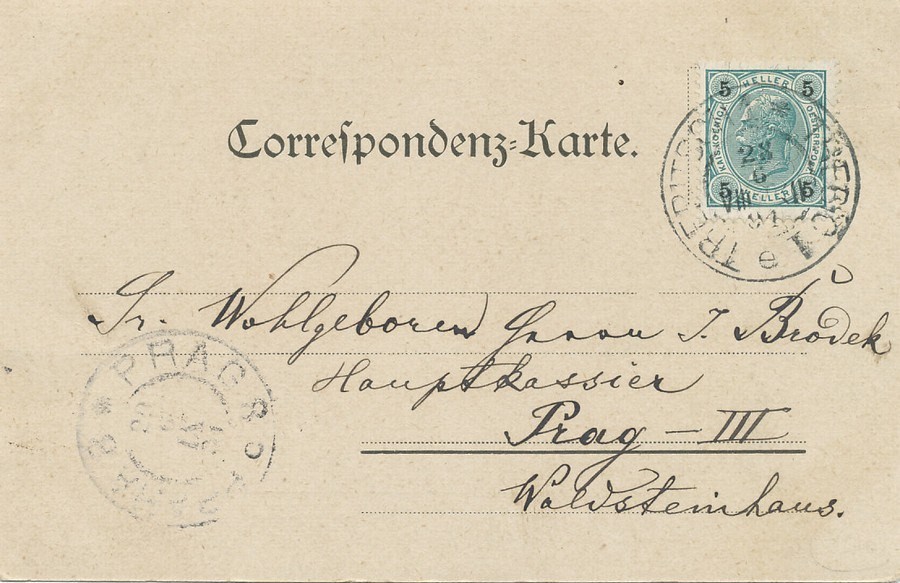 Correspondenz-Karte.
5 HELLER 5
KAIS. KOENIGL. OESTERR. POST
5 HELLER 5
28
6
VIII
e
Sr. Wohlgeboren Herrn J. Brodek
Hauptkassier
Prag – III
Waldsteinhaus.
PRAG